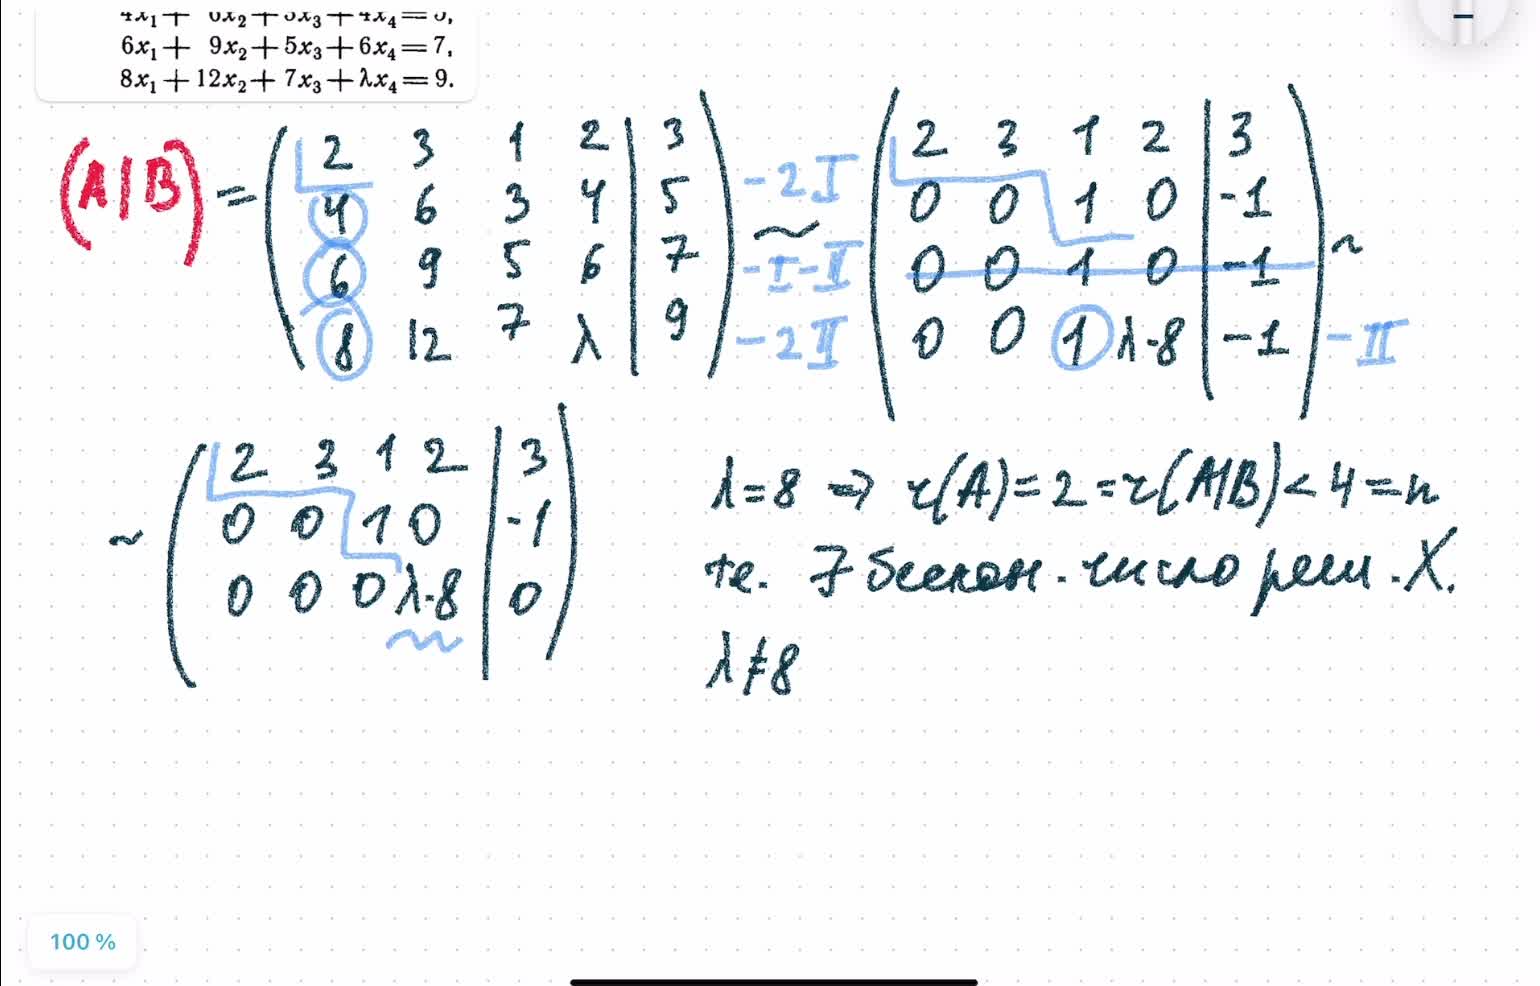 4x₁ + 6x₂ + 3x₃ + 4x₄ = 5,
6x₁ + 9x₂ + 5x₃ + 6x₄ = 7,
8x₁ + 12x₂ + 7x₃ + λx₄ = 9.
(A|B) =
2 3 1 2 | 3
4 6 3 4 | 5
6 9 5 6 | 7
8 12 7 λ | 9
-2I
~
-I-II
-2II
2 3 1 2 | 3
0 0 1 0 | -1
0 0 1 0 | -1
0 0 1 λ-8 | -1
~
-II
~
2 3 1 2 | 3
0 0 1 0 | -1
0 0 0 λ-8 | 0
λ=8 => r(A)=2=r(A|B)<4=n
те. ∃ бескон. число реш. X.
λ≠8
100 %